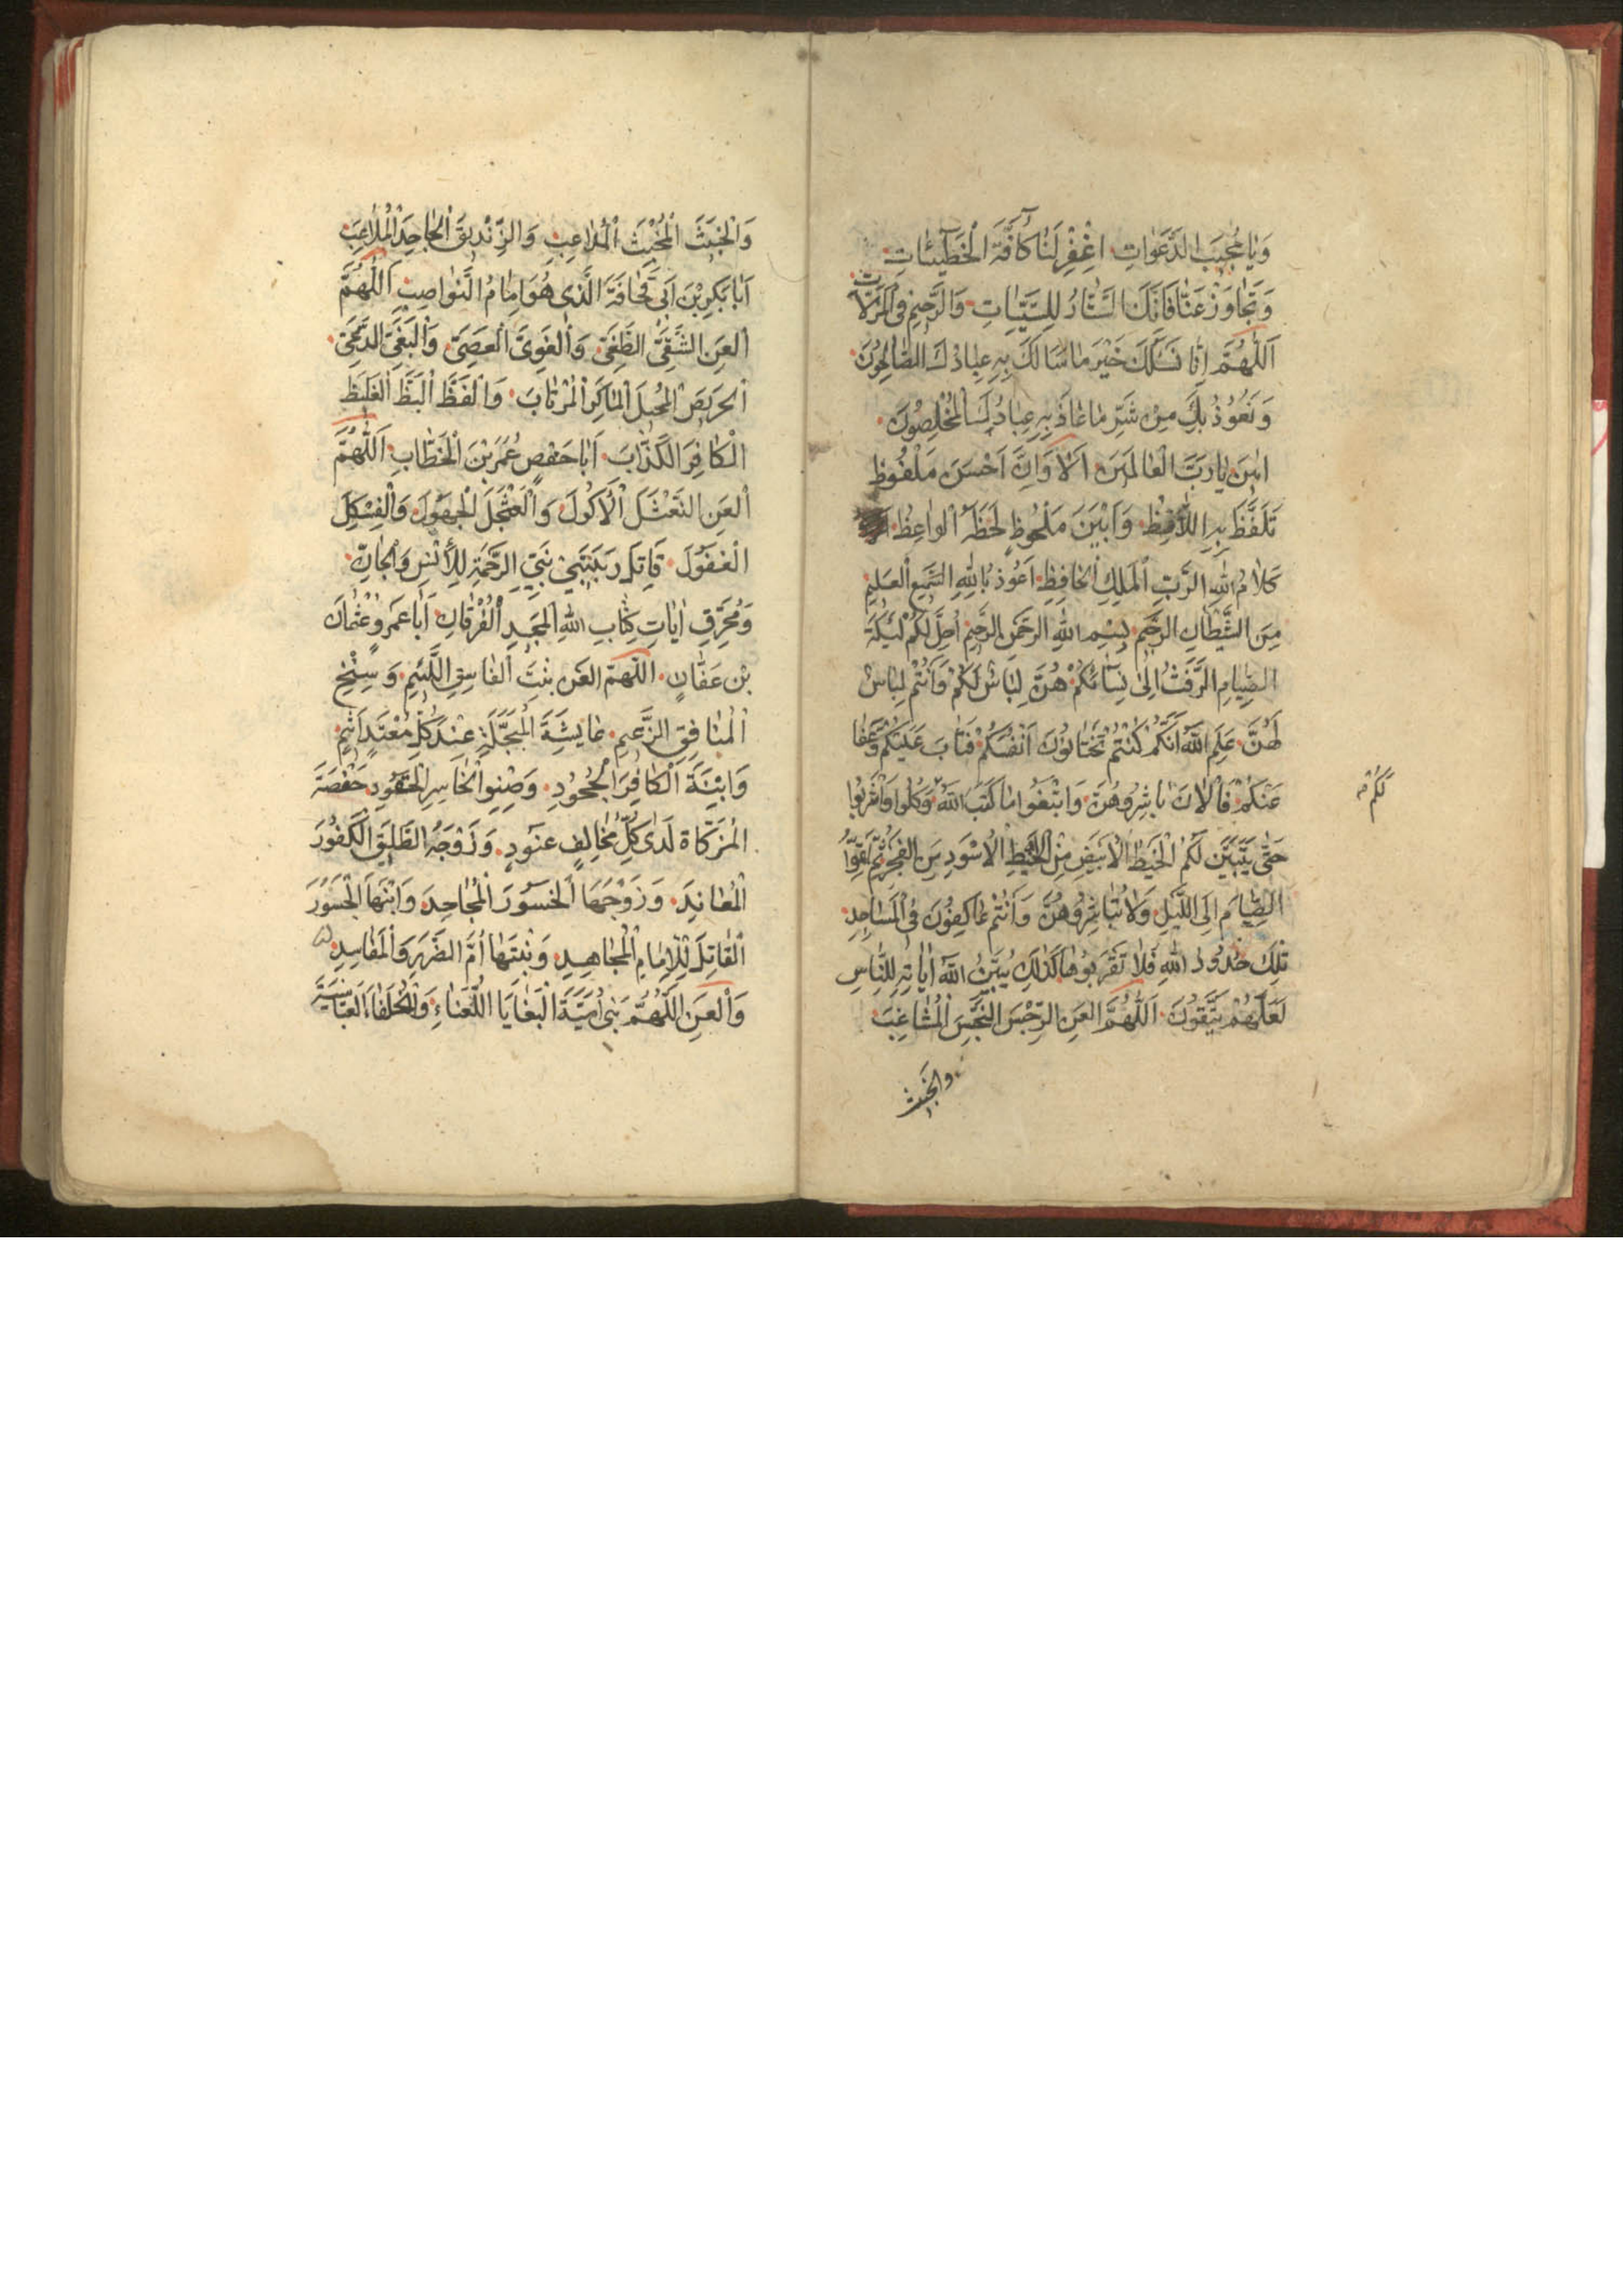 وَيٰا مُجيبَ الدَّعَوٰاتِ اغْفِرْ لَنٰا كٰافَّةَ الْخَطيٓـٔاتِ
وَتَجٰاوَزْ عَنّٰا فَاِنَّكَ السَّتّٰارُ لِلسَّيِّـٰاتِ وَالرَّحيمُ فِي الزَّلّاٰت
اَللّٰهُمَّ اِنّٰا نَسْـَٔلُكَ خَيْرَ مٰا سَاَلَكَ بِهِ عِبٰادُكَ الصّٰالِحُونَ
وَنَعُوذُ بِكَ مِنْ شَرِّ مٰا عٰاذَ بِهِ عِبٰادُكَ الْمُخْلِصُونَ
امينَ يٰا رَبَّ الْعٰالَمينَ اَلاٰ وَاِنَّ اَحْسَنَ مَلْفُوظٍ
تَلَفَّظَ بِهِ اللّٰافِظُ وَاَبْيَنَ مَلْحُوظٍ لَحَظَهُ الْوٰاعِظُ
كَلاٰمُ اللّٰهِ الرَّبِّ الْمَلِكِ الْحٰافِظِ اَعُوذُ بِاللّٰهِ السَّميعِ الْعَليمِ
مِنَ الشَّيْطٰانِ الرَّجيمِ بِسْمِ اللّٰهِ الرَّحْمٰنِ الرَّحيمِ اُحِلَّ لَكُمْ لَيْلَةَ
الصِّيٰامِ الرَّفَثُ اِلىٰ نِسٰآئِكُمْ هُنَّ لِبٰاسٌ لَكُمْ وَاَنْتُمْ لِبٰاسٌ
لَهُنَّ عَلِمَ اللّٰهُ اَنَّكُمْ كُنْتُمْ تَخْتٰانُونَ اَنْفُسَكُمْ فَتٰابَ عَلَيْكُمْ وَعَفٰا
عَنْكُمْ فَالْاٰنَ بٰاشِرُوهُنَّ وَابْتَغُوا مٰا كَتَبَ اللّٰهُ وَكُلُوا وَاشْرَبُوا
لَكُمْ
حَتّٰى يَتَبَيَّنَ لَكُمُ الْخَيْطُ الْاَبْيَضُ مِنَ الْخَيْطِ الْاَسْوَدِ مِنَ الْفَجْرِ ثُمَّ اَتِمُّوا
الصِّيٰامَ اِلَى اللَّيْلِ وَلاٰ تُبٰاشِرُوهُنَّ وَاَنْتُمْ عٰاكِفُونَ فِي الْمَسٰاجِدِ
تِلْكَ حُدُودُ اللّٰهِ فَلاٰ تَقْرَبُوهٰا كَذٰلِكَ يُبَيِّنُ اللّٰهُ اٰيٰاتِهِ لِلنّٰاسِ
لَعَلَّهُمْ يَتَّقُونَ اَللّٰهُمَّ الْعَنِ الرِّجْسَ النَّجِسَ الْمُشٰاغِبَ
والخبيث
وَالْخَبيثَ الْمُخْبِثَ الْمُدٰاعِبَ وَالزِّنْديقَ الْجٰاحِدَ الْمُلاٰعِبَ
اَبٰا بَكْرِ بْنَ اَبي قُحٰافَةَ الَّذي هُوَ اِمٰامُ النَّوٰاصِبِ اَللّٰهُمَّ
الْعَنِ الشَّقِيَّ الطَّغِيَّ وَالْغَوِيَّ الْعَصِيَّ وَالْبَغِيَّ
الْحَريصَ الْمُحيلَ الْمٰاكِرَ الْمُرْتٰابَ وَالْفَظَّ الْبَظَّ الْغَليظَ
الْكٰافِرَ الْكَذّٰابَ اَبٰا حَفْصٍ عُمَرَ بْنَ الْخَطّٰابِ اَللّٰهُمَّ
الْعَنِ النَّعْثَلَ الْاَكُولَ وَالْعَثْجَلَ الْجَهُولَ وَالْفِسْكِلَ
الْغَفُولَ قٰاتِلَ رَبيبَتَيْ نَبِيِّ الرَّحْمَةِ لِلْاِنْسِ وَالْجٰانِّ
وَمُحَرِّقِ اٰيٰاتِ كِتٰابِ اللّٰهِ الْمَجيدِ الْفُرْقٰانِ اَبٰا عَمْرٍو عُثْمٰانَ
بْنَ عَفّٰانٍ اَللّٰهُمَّ الْعَنِ بِنْتَ الْفٰاسِقِ اللَّئيمِ وَسِنْخِ
الْمُنٰافِقِ الزَّعيمِ عٰايِشَةَ الْمُبَجَّلَةَ عِنْدَ كُلِّ مُعْتَدٍ اَثيمٍ
وَابْنَةَ الْكٰافِرِ الْجَحُودِ وَصِنْوِ الْخٰاسِرِ الْحَقُودِ حَفْصَةَ
الْمُزَكّٰاةَ لَدىٰ كُلِّ مُخٰالِفٍ عَنُودٍ وَزَوْجَهُ الطَّليقَ الْكَفُورَ
الْمُعٰانِدَ وَزَوْجَهَا الْخَسُورَ الْمُجٰاحِدَ وَابْنَهَا الْجَسُورَ
الْقٰاتِلَ لِلْاِمٰامِ الْمُجٰاهِدِ وَبِنْتَهٰا اُمَّ الضَّرَرِ وَالْمَفٰاسِدِ
وَالْعَنِ اللّٰهُمَّ بَني اُمَيَّةَ الْبَغٰايَا اللُّعَنٰاءِ وَالْخُلَفٰاءَ الْعَبّٰاسِيَّةَ